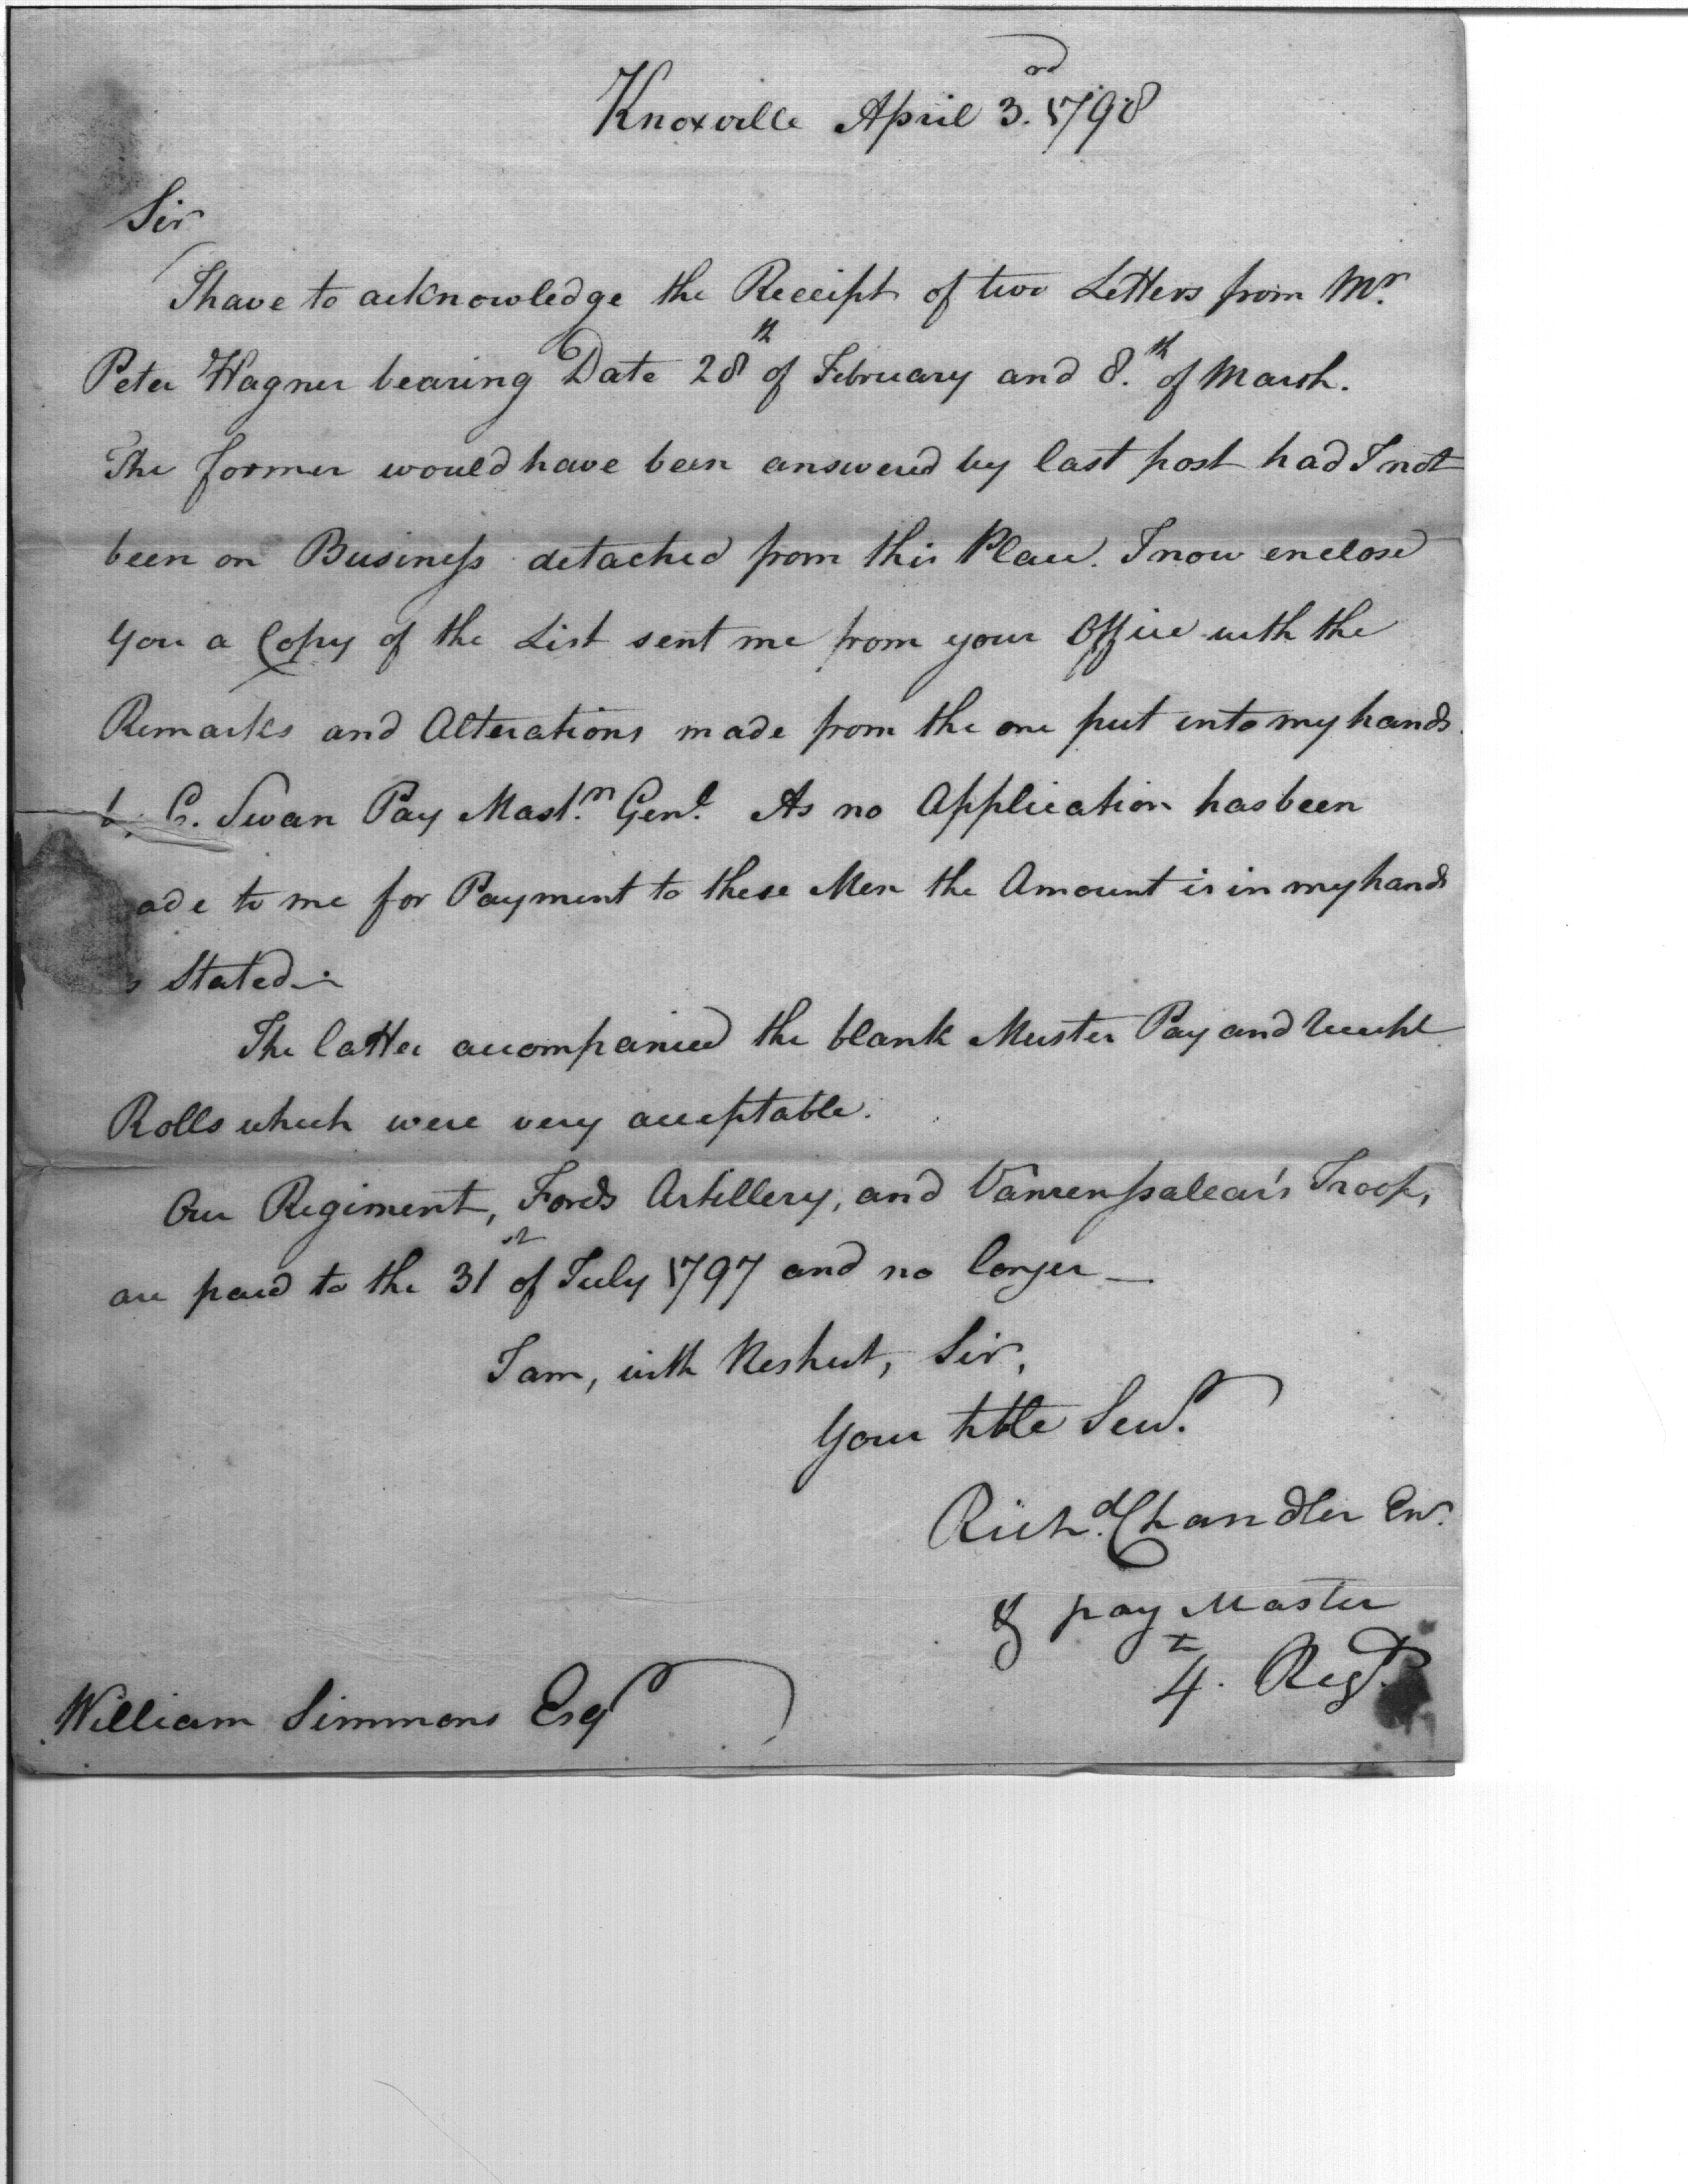 Knoxville April 3.rd 1798
Sir
I have to acknowledge the Receipt of two Letters from Mr.
Peter Hagner bearing Date 28th of February and 8.th of March.
The former would have been answered by last post had I not
been on Business detached from this Place. I now enclose
you a Copy of the List sent me from your Office with the
Remarks and Alterations made from the one put into my hands
C. Swan Pay Mastr. Genl. As no Application has been
ade to me for Payment to these Men the Amount is in my hands
s Stated.
The latter accompanied the blank Muster Pay and receipt
Rolls which were very acceptable.
Our Regiment, Fords Artillery, and Vanrenssalear's Troop,
are paid to the 31st of July 1797 and no longer —
I am, with Respect, Sir,
Your hble Serv.
Richd. Chandler
& pay Master
4. Regt.
William Simmons Esqr